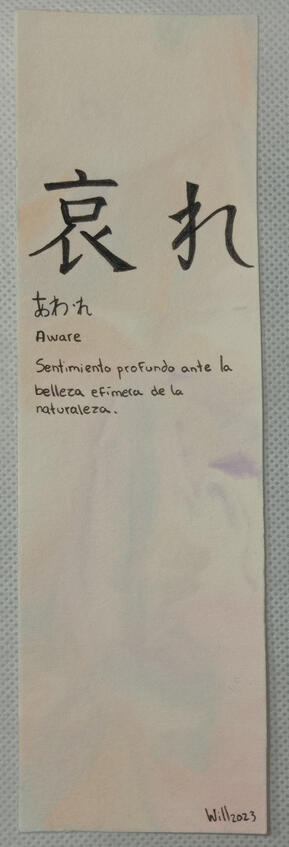 哀れ
あわ·れ
Aware
Sentimiento profundo ante la
belleza efímera de la
naturaleza.
Will2023